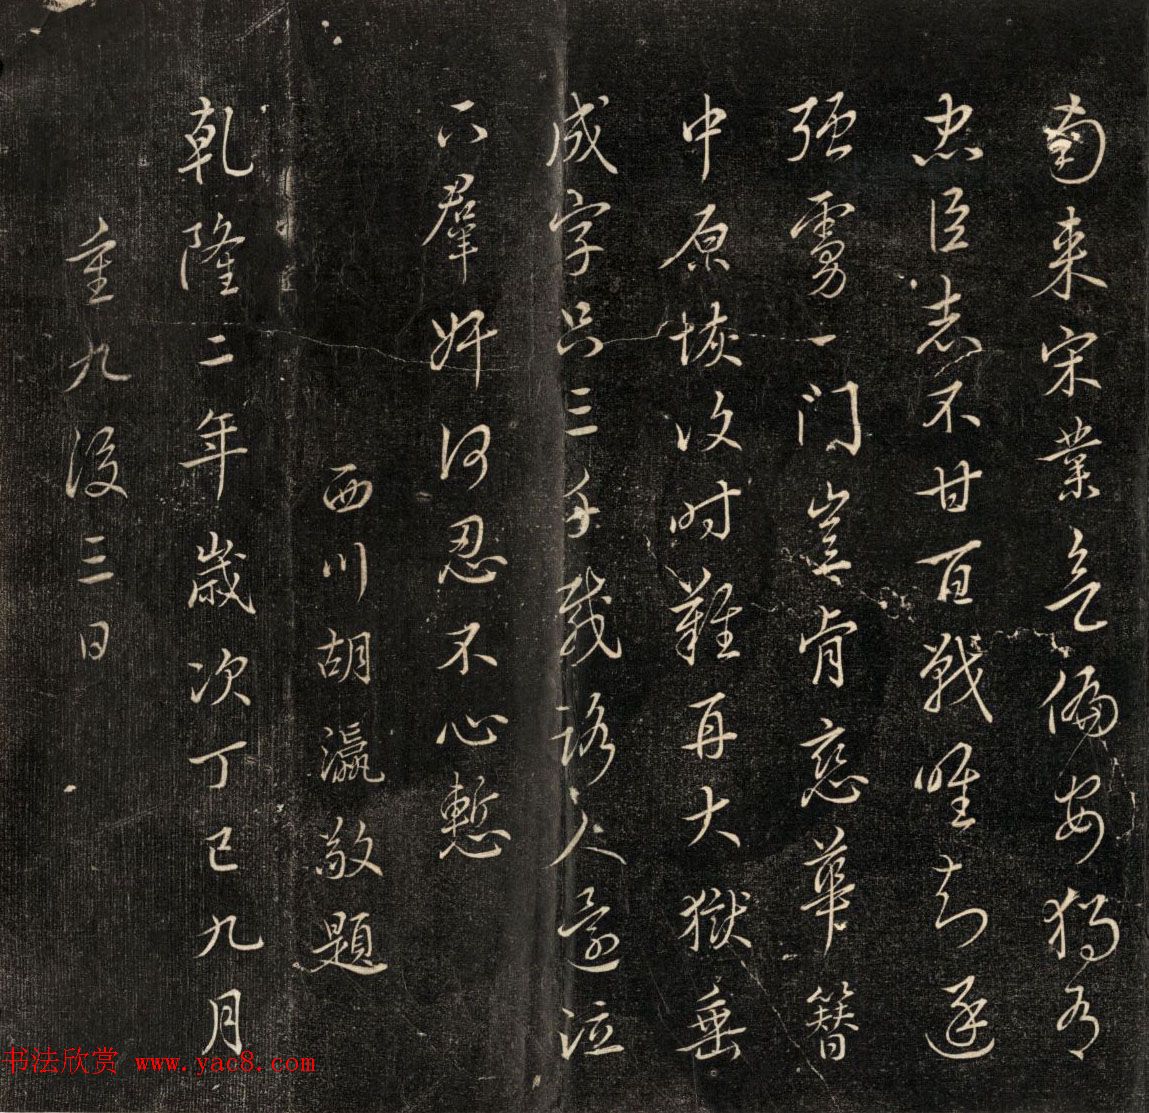 南来宋業乞偏安獨有
忠臣志不甘百戰唯知逐
强虜一門豈肯戀華簪
中原恢復时難再大獄垂
成字只三千載路人還泣
下羣奸何忍不心慙
西川胡瀛敬題
乾隆二年歲次丁巳九月
重九後三日
书法欣赏 www.yac8.com